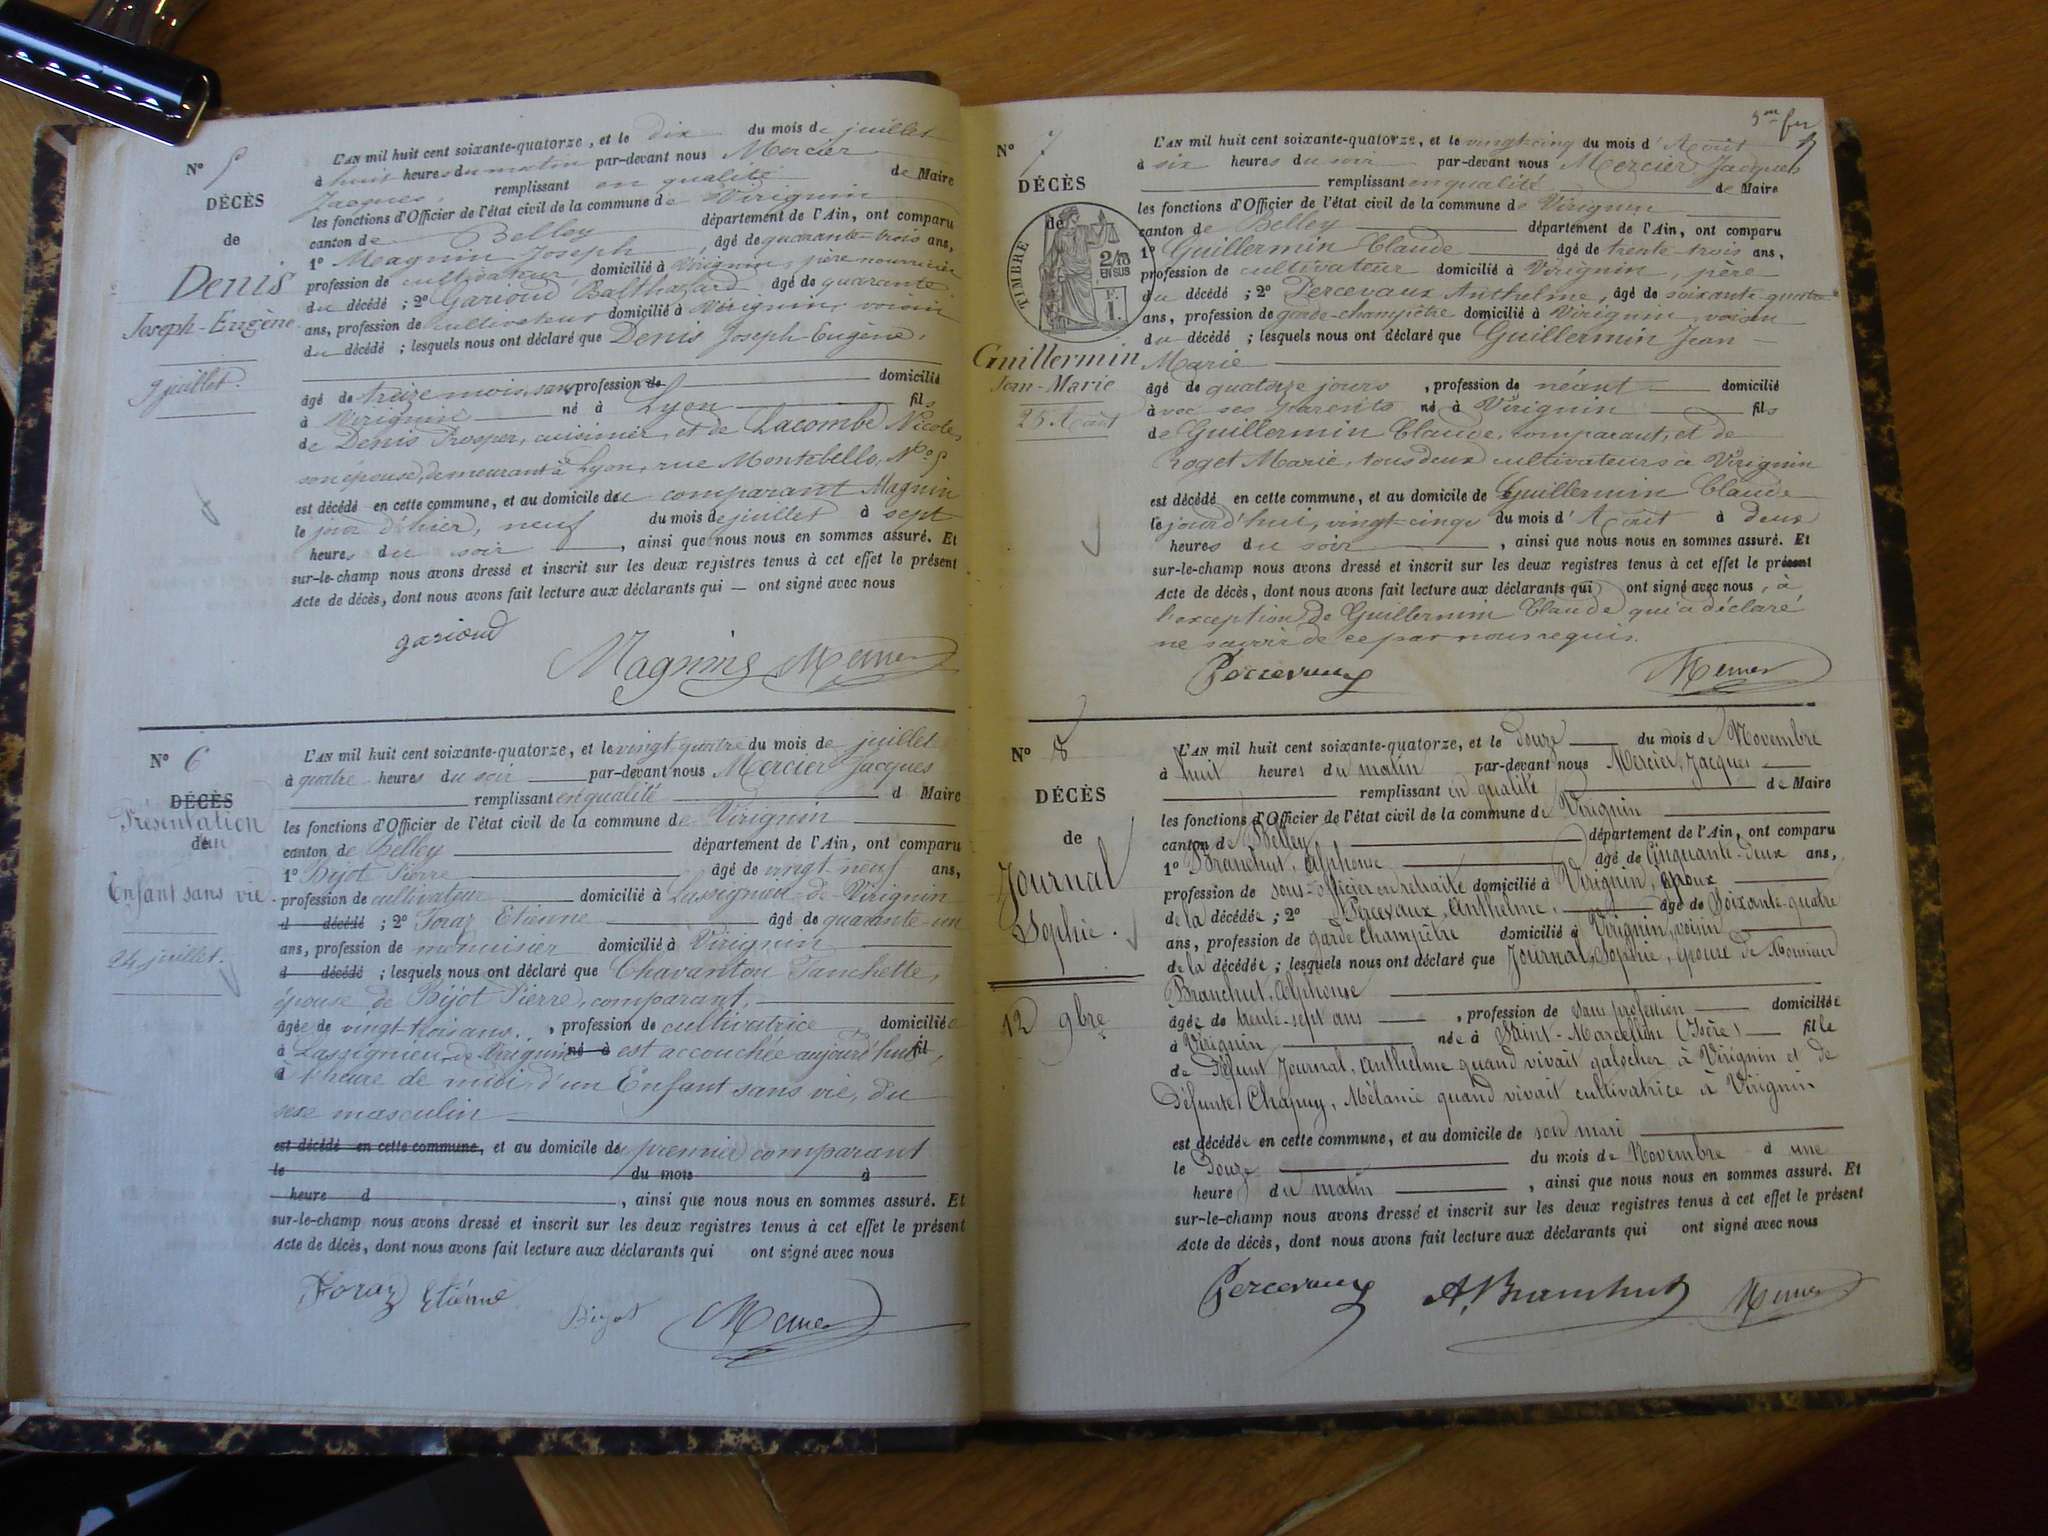 N° 5
DÉCÈS
de
Denis
Joseph-Eugène
9 juillet.
L'AN mil huit cent soixante-quatorze, et le dix du mois de juillet
à huit heures du matin par-devant nous Mercier
Jacques, remplissant en qualité de Maire
les fonctions d'Officier de l'état civil de la commune de Virignin
canton de Belley département de l'Ain, ont comparu
1° Magnin Joseph, âgé de quarante-trois ans,
profession de cultivateur domicilié à Virignin, père nourricier
du décédé ; 2° Garioud Balthazard âgé de quarante
ans, profession de cultivateur domicilié à Virignin, voisin
du décédé ; lesquels nous ont déclaré que Denis Joseph Eugène,
âgé de treize mois, sans profession de domicilié
à Virignin né à Lyon fils
de Denis Prosper, cuisinier, et de Lacombe Nicole,
son épouse, demeurant à Lyon, rue Montebello, N° 5
est décédé en cette commune, et au domicile du comparant Magnin
le jour d'hier, neuf du mois de juillet à sept
heures du soir, ainsi que nous nous en sommes assuré. Et
sur-le-champ nous avons dressé et inscrit sur les deux registres tenus à cet effet le présent
Acte de décès, dont nous avons fait lecture aux déclarants qui — ont signé avec nous
garioud
Magnin Mercier
N° 6
DÉCÈS
Présentation
d'un
Enfant sans vie
24 juillet.
L'AN mil huit cent soixante-quatorze, et le vingt-quatre du mois de juillet
à quatre heures du soir par-devant nous Mercier Jacques
remplissant en qualité d Maire
les fonctions d'Officier de l'état civil de la commune de Virignin
canton de Belley département de l'Ain, ont comparu
1° Bijot Pierre âgé de vingt-neuf ans,
profession de cultivateur domicilié à Lassignieu de Virignin
d décédé ; 2° Foraz Etienne âgé de quarante-un
ans, profession de menuisier domicilié à Virignin
d décédé ; lesquels nous ont déclaré que Chavanton Fanchette,
épouse de Bijot Pierre, comparant,
âgée de vingt-trois ans, profession de cultivatrice domiciliée
à Lassignieu, de Virignin né à est accouchée aujourd'hui, fil
à l'heure de midi, d'un Enfant sans vie, du
sexe masculin
est décédé en cette commune, et au domicile du premier comparant
le du mois à
heure d, ainsi que nous nous en sommes assuré. Et
sur-le-champ nous avons dressé et inscrit sur les deux registres tenus à cet effet le présent
Acte de décès, dont nous avons fait lecture aux déclarants qui ont signé avec nous
Foraz Etiénne
Bijot Mercier
N° 7
DÉCÈS
de
TIMBRE
2/10
EN SUS
F.
1.
Guillermin
Jean-Marie
25 Août
L'AN mil huit cent soixante-quatorze, et le vingt-cinq du mois d'Août
à six heures du soir par-devant nous Mercier Jacques
remplissant en qualité de Maire
les fonctions d'Officier de l'état civil de la commune de Virignin
canton de Belley département de l'Ain, ont comparu
1° Guillermin Claude âgé de trente-trois ans,
profession de cultivateur domicilié à Virignin, père
du décédé ; 2° Percevaux Anthelme, âgé de soixante-quatre
ans, profession de garde-champêtre domicilié à Virignin, voisin
du décédé ; lesquels nous ont déclaré que Guillermin Jean-
Marie
âgé de quatorze jours, profession de néant domicilié
avec ses parents né à Virignin fils
de Guillermin Claude, comparant, et de
Roget Marie, tous deux cultivateurs à Virignin
est décédé en cette commune, et au domicile de Guillermin Claude
le jourd'hui, vingt-cinq du mois d'Août à deux
heures du soir, ainsi que nous nous en sommes assuré. Et
sur-le-champ nous avons dressé et inscrit sur les deux registres tenus à cet effet le présent
Acte de décès, dont nous avons fait lecture aux déclarants qui ont signé avec nous, à
l'exception de Guillermin Claude qui a déclaré
ne savoir de ce par nous requis.
Percevaux Mercier
N° 8
DÉCÈS
de
Journal
Sophie.
12 9bre
L'AN mil huit cent soixante-quatorze, et le douze du mois de Novembre
à huit heures du matin par-devant nous Mercier, Jacques
remplissant en qualité de Maire
les fonctions d'Officier de l'état civil de la commune de Virignin
canton de Belley département de l'Ain, ont comparu
1° Branchut, Alphonse âgé de Cinquante-deux ans,
profession de sous-officier en retraite domicilié à Virignin, époux
de la décédée ; 2° Percevaux, Anthelme, âgé de Soixante-quatre
ans, profession de garde Champêtre domicilié à Virignin, voisin
de la décédée ; lesquels nous ont déclaré que Journal, Sophie, épouse de Monsieur
Branchut, Alphonse
âgée de trente-sept ans, profession de Sans profession domiciliée
à Virignin née à Saint-Marcellin (Isère) fille
de Défunt Journal, Anthelme quand vivait galocher à Virignin et de
Défunte Chapuy, Mélanie quand vivait cultivatrice à Virignin
est décédée en cette commune, et au domicile de son mari
le Douze du mois de Novembre à une
heure du matin, ainsi que nous nous en sommes assuré. Et
sur-le-champ nous avons dressé et inscrit sur les deux registres tenus à cet effet le présent
Acte de décès, dont nous avons fait lecture aux déclarants qui ont signé avec nous
Percevaux A. Branchut Mercier